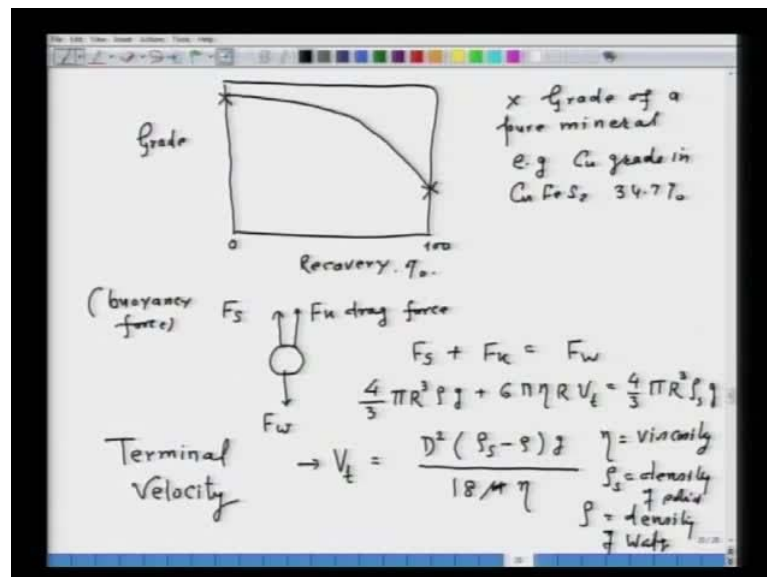 File Edit View Insert Actions Tools Help
Grade
x Grade of a
pure mineral
e.g Cu grade in
CuFeS2 34.7%
0 100
Recovery %.
(buoyancy
force) Fs Fk drag force
Fs + Fk = Fw
4/3 πR³ρg + 6πηR Vt = 4/3 πR³ρs g
Fw
Terminal
Velocity → Vt = D²(ρs-ρ)g / 18 η
η = viscosity
ρs = density
of solid
ρ = density
of water